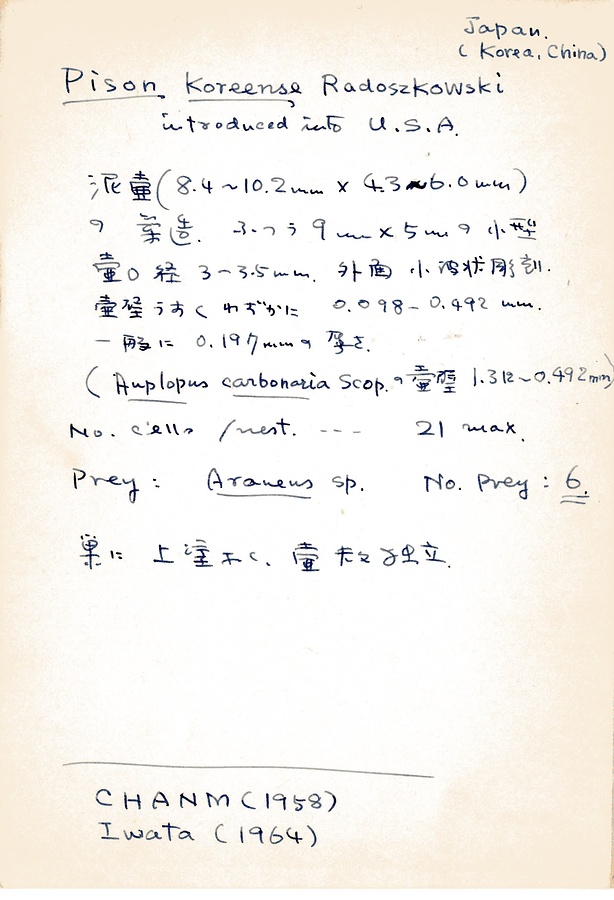 Japan.
(Korea, China)
Pison koreense Radoszkowski
introduced into U.S.A.
泥壷(8.4~10.2mm x 4.3~6.0mm)
の 築造. ふつう 9mm x 5mmの 小型
壷口径 3~3.5mm. 外面 小波状彫刻.
壷壁うすく わずかに 0.098-0.492 mm.
一般に 0.197mmの 厚さ.
(Auplopus carbonaria Scop.の壷壁 1.312~0.492mm)
No. cells /nest. --- 21 max.
Prey: Araneus sp. No. Prey: 6.
巣に 上塗なく、壷 独立.
CHANM (1958)
Iwata (1964)